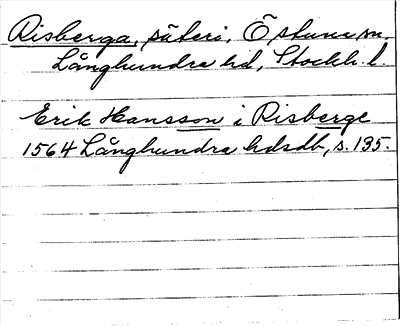 Risberga, säteri, Östuna sn,
Långhundra hd, Stockh. l.
Erik Hansson i Risberge
1564 Långhundra hdsdb, s. 135.